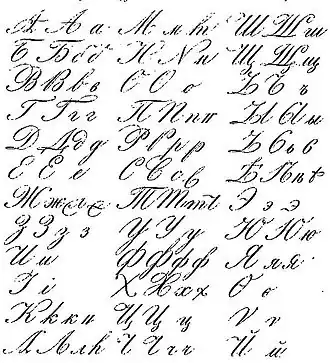 А А а М м т Ш Ш ш
Б Б б б Н N н Щ Щ щ
В В в в О О о Ъ Ъ ъ
Г Г г г П П п п Ы Ы ы
Д Д д д Р Р р р Ь Ь ь
Е Е е С С с с Ѣ Ѣ ѣ ѣ
Ж ж ж ж Т Т т т Э э э
З З з з У У у Ю Ю ю
И и Ф Ф ф ф Я я я
І і Х Х х х Ѳ ѳ
К к к н Ц Ц ц Ѵ ѵ
Л Л л Ч Ч ч ч Й й